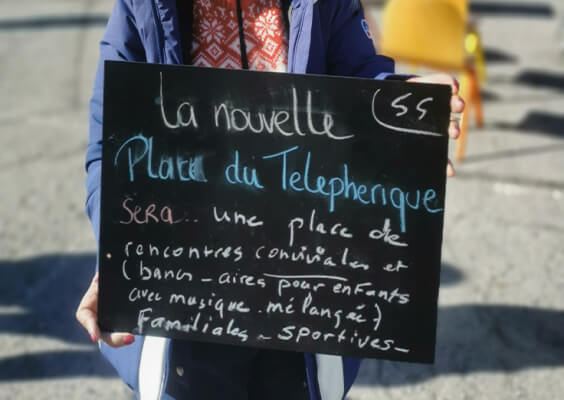 La nouvelle 55
Place du Telepherique
Sera.. une place de
rencontres conviviales et
(bancs - aires pour enfants
avec musique. mélangée)
Familiales - sportives -